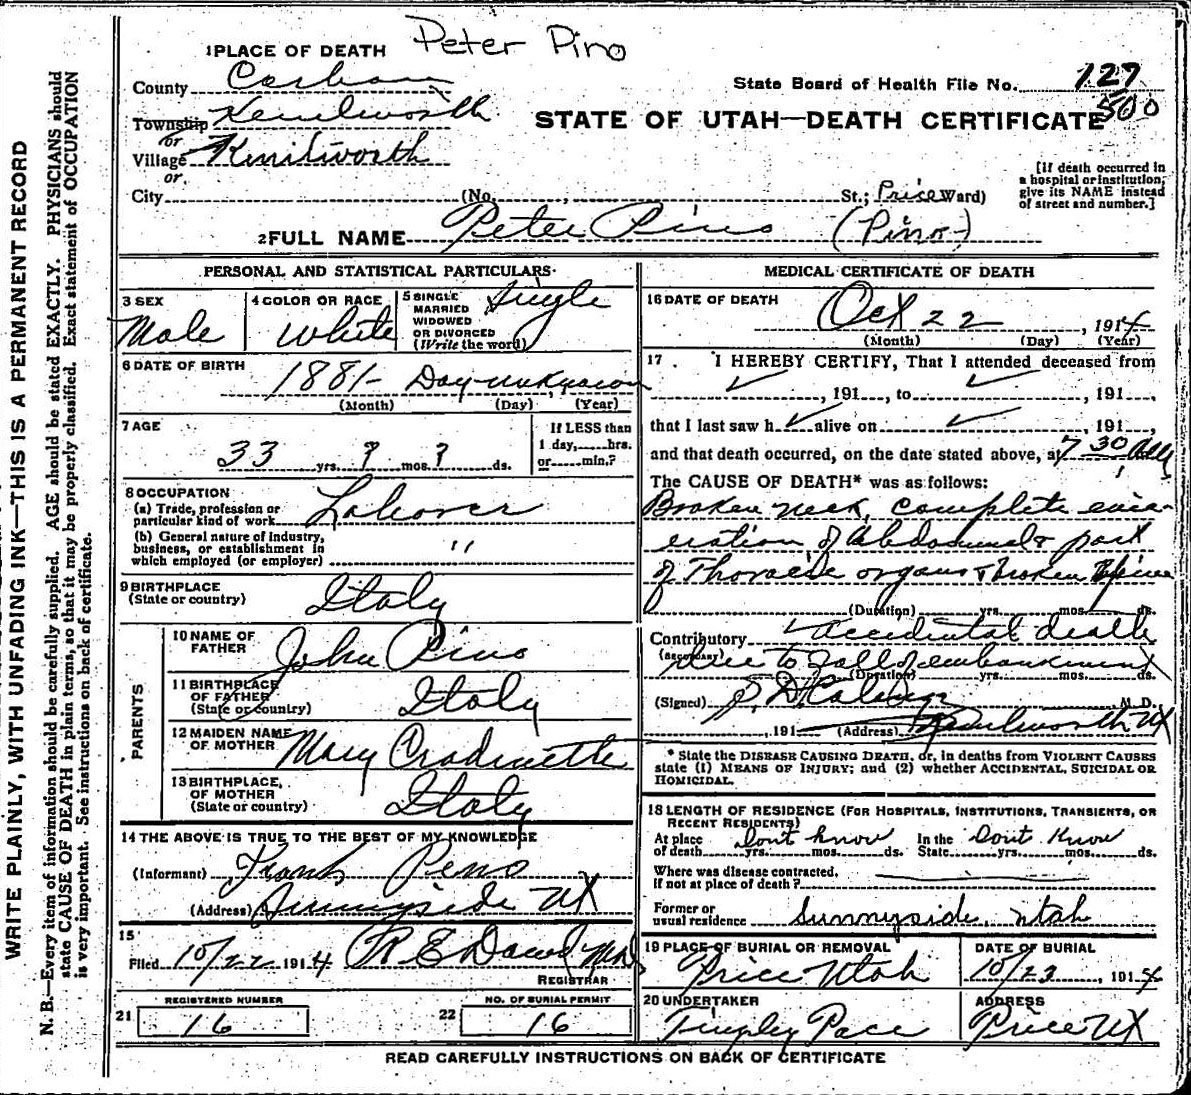 Peter Pino
1 PLACE OF DEATH
County Carbon
State Board of Health File No. 127
500
Township Kenilworth
or
Village Kenilworth
or
City (No. , St.; Price Ward)
STATE OF UTAH—DEATH CERTIFICATE
[If death occurred in
a hospital or institution,
give its NAME instead
of street and number.]
2 FULL NAME Peter Pino (Pino)
PERSONAL AND STATISTICAL PARTICULARS
3 SEX
Male
4 COLOR OR RACE
White
5 SINGLE
MARRIED
WIDOWED
OR DIVORCED
(Write the word)
Single
6 DATE OF BIRTH
1881- Day-unknown
(Month) (Day) (Year)
7 AGE
33 yrs. ? mos. ? ds.
If LESS than
1 day, hrs.
or min.?
8 OCCUPATION
(a) Trade, profession or
particular kind of work Laborer
(b) General nature of industry,
business, or establishment in
which employed (or employer) "
9 BIRTHPLACE
(State or country) Italy
PARENTS
10 NAME OF
FATHER John Pino
11 BIRTHPLACE
OF FATHER
(State or country) Italy
12 MAIDEN NAME
OF MOTHER Mary
13 BIRTHPLACE,
OF MOTHER
(State or country) Italy
14 THE ABOVE IS TRUE TO THE BEST OF MY KNOWLEDGE
(Informant) Frank Peno
(Address) Sunnyside UT
15
Filed 10/22 1914 R E Dowd MD
REGISTRAR
REGISTERED NUMBER
21 16
NO. OF BURIAL PERMIT
22 16
MEDICAL CERTIFICATE OF DEATH
16 DATE OF DEATH
Oct 22, 1914
(Month) (Day) (Year)
17. I HEREBY CERTIFY, That I attended deceased from
✓, 191 , to ✓, 191 ,
that I last saw h ✓ alive on ✓, 191 ,
and that death occurred, on the date stated above, at 7 30 AM
The CAUSE OF DEATH* was as follows:
Broken neck, complete evis-
ceration of Abdominal & part
of Thoracic organs & broken Spine
(Duration) yrs. mos. ds.
Contributory accidental death
(SECONDARY) due to fall of embankment
(Duration) yrs. mos. ds.
(Signed) M. D.
, 191 (Address) Kenilworth UT
* State the DISEASE CAUSING DEATH, or, in deaths from VIOLENT CAUSES
state (1) MEANS OF INJURY; and (2) whether ACCIDENTAL, SUICIDAL OR
HOMICIDAL.
18 LENGTH OF RESIDENCE (FOR HOSPITALS, INSTITUTIONS, TRANSIENTS, OR
RECENT RESIDENTS)
At place
of death Dont know yrs. mos. ds.
In the
State Dont Know yrs. mos. ds.
Where was disease contracted,
if not at place of death?
Former or
usual residence Sunnyside, Utah
19 PLACE OF BURIAL OR REMOVAL
Price Utah
DATE OF BURIAL
10/23, 1914
20 UNDERTAKER
Tingley Pace
ADDRESS
Price UT
READ CAREFULLY INSTRUCTIONS ON BACK OF CERTIFICATE
WRITE PLAINLY, WITH UNFADING INK—THIS IS A PERMANENT RECORD
N. B.—Every item of information should be carefully supplied. AGE should be stated EXACTLY. PHYSICIANS should
state CAUSE OF DEATH in plain terms, so that it may be properly classified. Exact statement of OCCUPATION
is very important. See instructions on back of certificate.